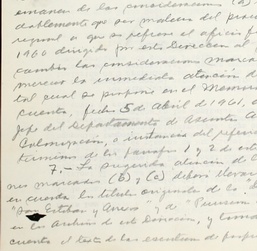 emanan de las consideraciones (a)
dablemente que por motivos del proce
regional a que se refiere el oficio
1960 dirigido por esta Dirección al
cambio las consideraciones marca
merecen la inmediata atención de
tal cual se propone en el Memora
cuenta, fecha 5 de Abril de 1961,
Jefe del Departamento de Asuntos A
Colonización, a instancia del
términos de los párrafos 1 y 2 de est
7.- La segunda atención de l
nes marcadas (b) y (c) deberá llevar
en cuenta los títulos originales de
"San Esteban y Anexos" y de
en los Archivos de esta Dirección, y
cuenta el texto de las escrituras de